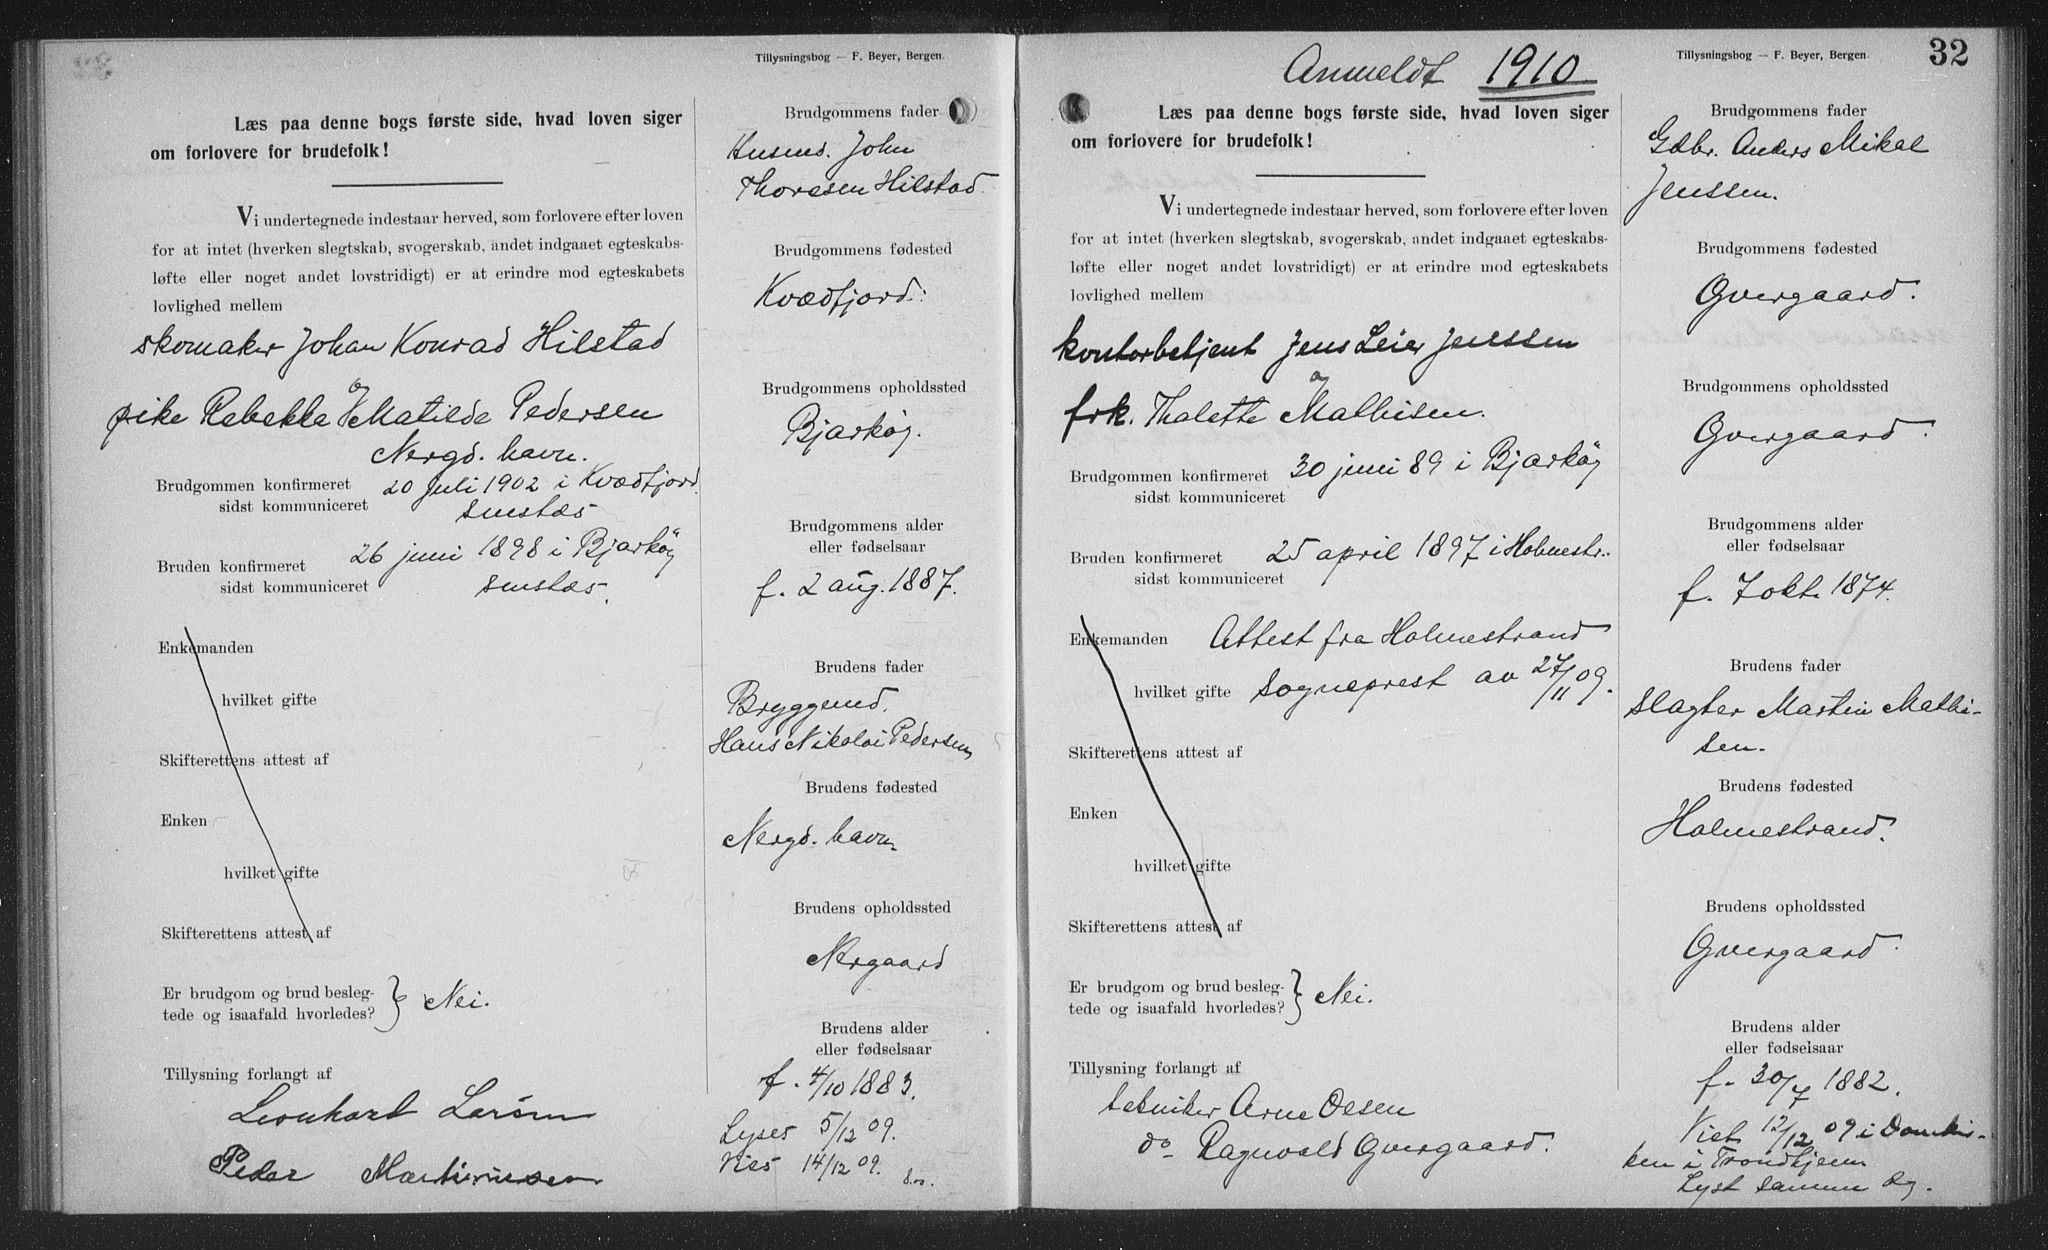 Tillysningsbog — F. Beyer, Bergen.
Læs paa denne bogs første side, hvad loven siger
om forlovere for brudefolk!
Vi undertegnede indestaar herved, som forlovere efter loven
for at intet (hverken slegtskab, svogerskab, andet indgaaet egteskabs-
løfte eller noget andet lovstridigt) er at erindre mod egteskabets
lovlighed mellem
skomaker Johan Konrad Hilstad
og
pike Rebekka Matilde Pedersen
Nergd. havn.
Brudgommen konfirmeret 20 juli 1902 i Kvædfjord
sidst kommuniceret smstds
Bruden konfirmeret 26 juni 1898 i Bjarköy
sidst kommuniceret smstds.
Enkemanden
hvilket gifte
Skifterettens attest af
Enken
hvilket gifte
Skifterettens attest af
Er brudgom og brud besleg-
tede og isaafald hvorledes? Nei.
Tillysning forlangt af
Leonhard Larsen
Peder Martinussen
Brudgommens fader
Husmd. John
Thoresen Hilstad.
Brudgommens fødested
Kvædfjord.
Brudgommens opholdssted
Bjarköy.
Brudgommens alder
eller fødselsaar
f. 2 aug. 1887.
Brudens fader
Bryggemd.
Hans Nikolai Pedersen
Brudens fødested
Nergd. havn.
Brudens opholdssted
Nergaard
Brudens alder
eller fødselsaar
f. 4/10 1883.
Lyses 5/12 09.
Vies 14/12 09.
Anmeldt 1910
Tillysningsbog — F. Beyer, Bergen.
32
Læs paa denne bogs første side, hvad loven siger
om forlovere for brudefolk!
Vi undertegnede indestaar herved, som forlovere efter loven
for at intet (hverken slegtskab, svogerskab, andet indgaaet egteskabs-
løfte eller noget andet lovstridigt) er at erindre mod egteskabets
lovlighed mellem
kontorbetjent Jens Leier Jenssen
og
frk. Thalette Mathisen.
Brudgommen konfirmeret 30 juni 89 i Bjarköy
sidst kommuniceret
Bruden konfirmeret 25 april 1897 i Holmestr.
sidst kommuniceret
Enkemanden Attest fra Holmestrand
hvilket gifte sogneprest av 27/11 09.
Skifterettens attest af
Enken
hvilket gifte
Skifterettens attest af
Er brudgom og brud besleg-
tede og isaafald hvorledes? Nei.
Tillysning forlangt af
tekniker Arne Oesen
do Ragnvald Øvergaard.
Brudgommens fader
Gdbr. Anders Mikal
Jenssen.
Brudgommens fødested
Øvergaard.
Brudgommens opholdssted
Øvergaard.
Brudgommens alder
eller fødselsaar
f. 7 okt. 1874.
Brudens fader
slagter Martin Mathi-
sen.
Brudens fødested
Holmestrand.
Brudens opholdssted
Øvergaard.
Brudens alder
eller fødselsaar
f. 30/7 1882.
Viet 12/12 09 i Domkir-
ken i Trondhjem
Lyst samme dg.